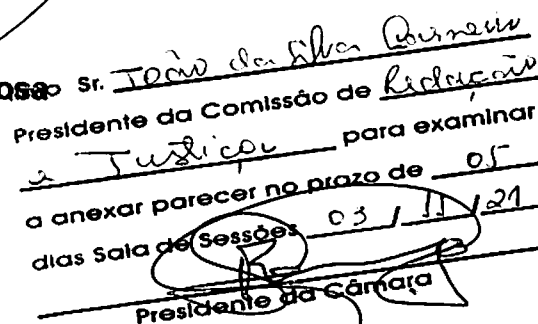 Sr. João da Silva Carneiro
Presidente da Comissão de Redação
e Justiça para examinar
a anexar parecer no prazo de 05
dias Sala de Sessões 03 / 11 / 21
Presidente da Câmara